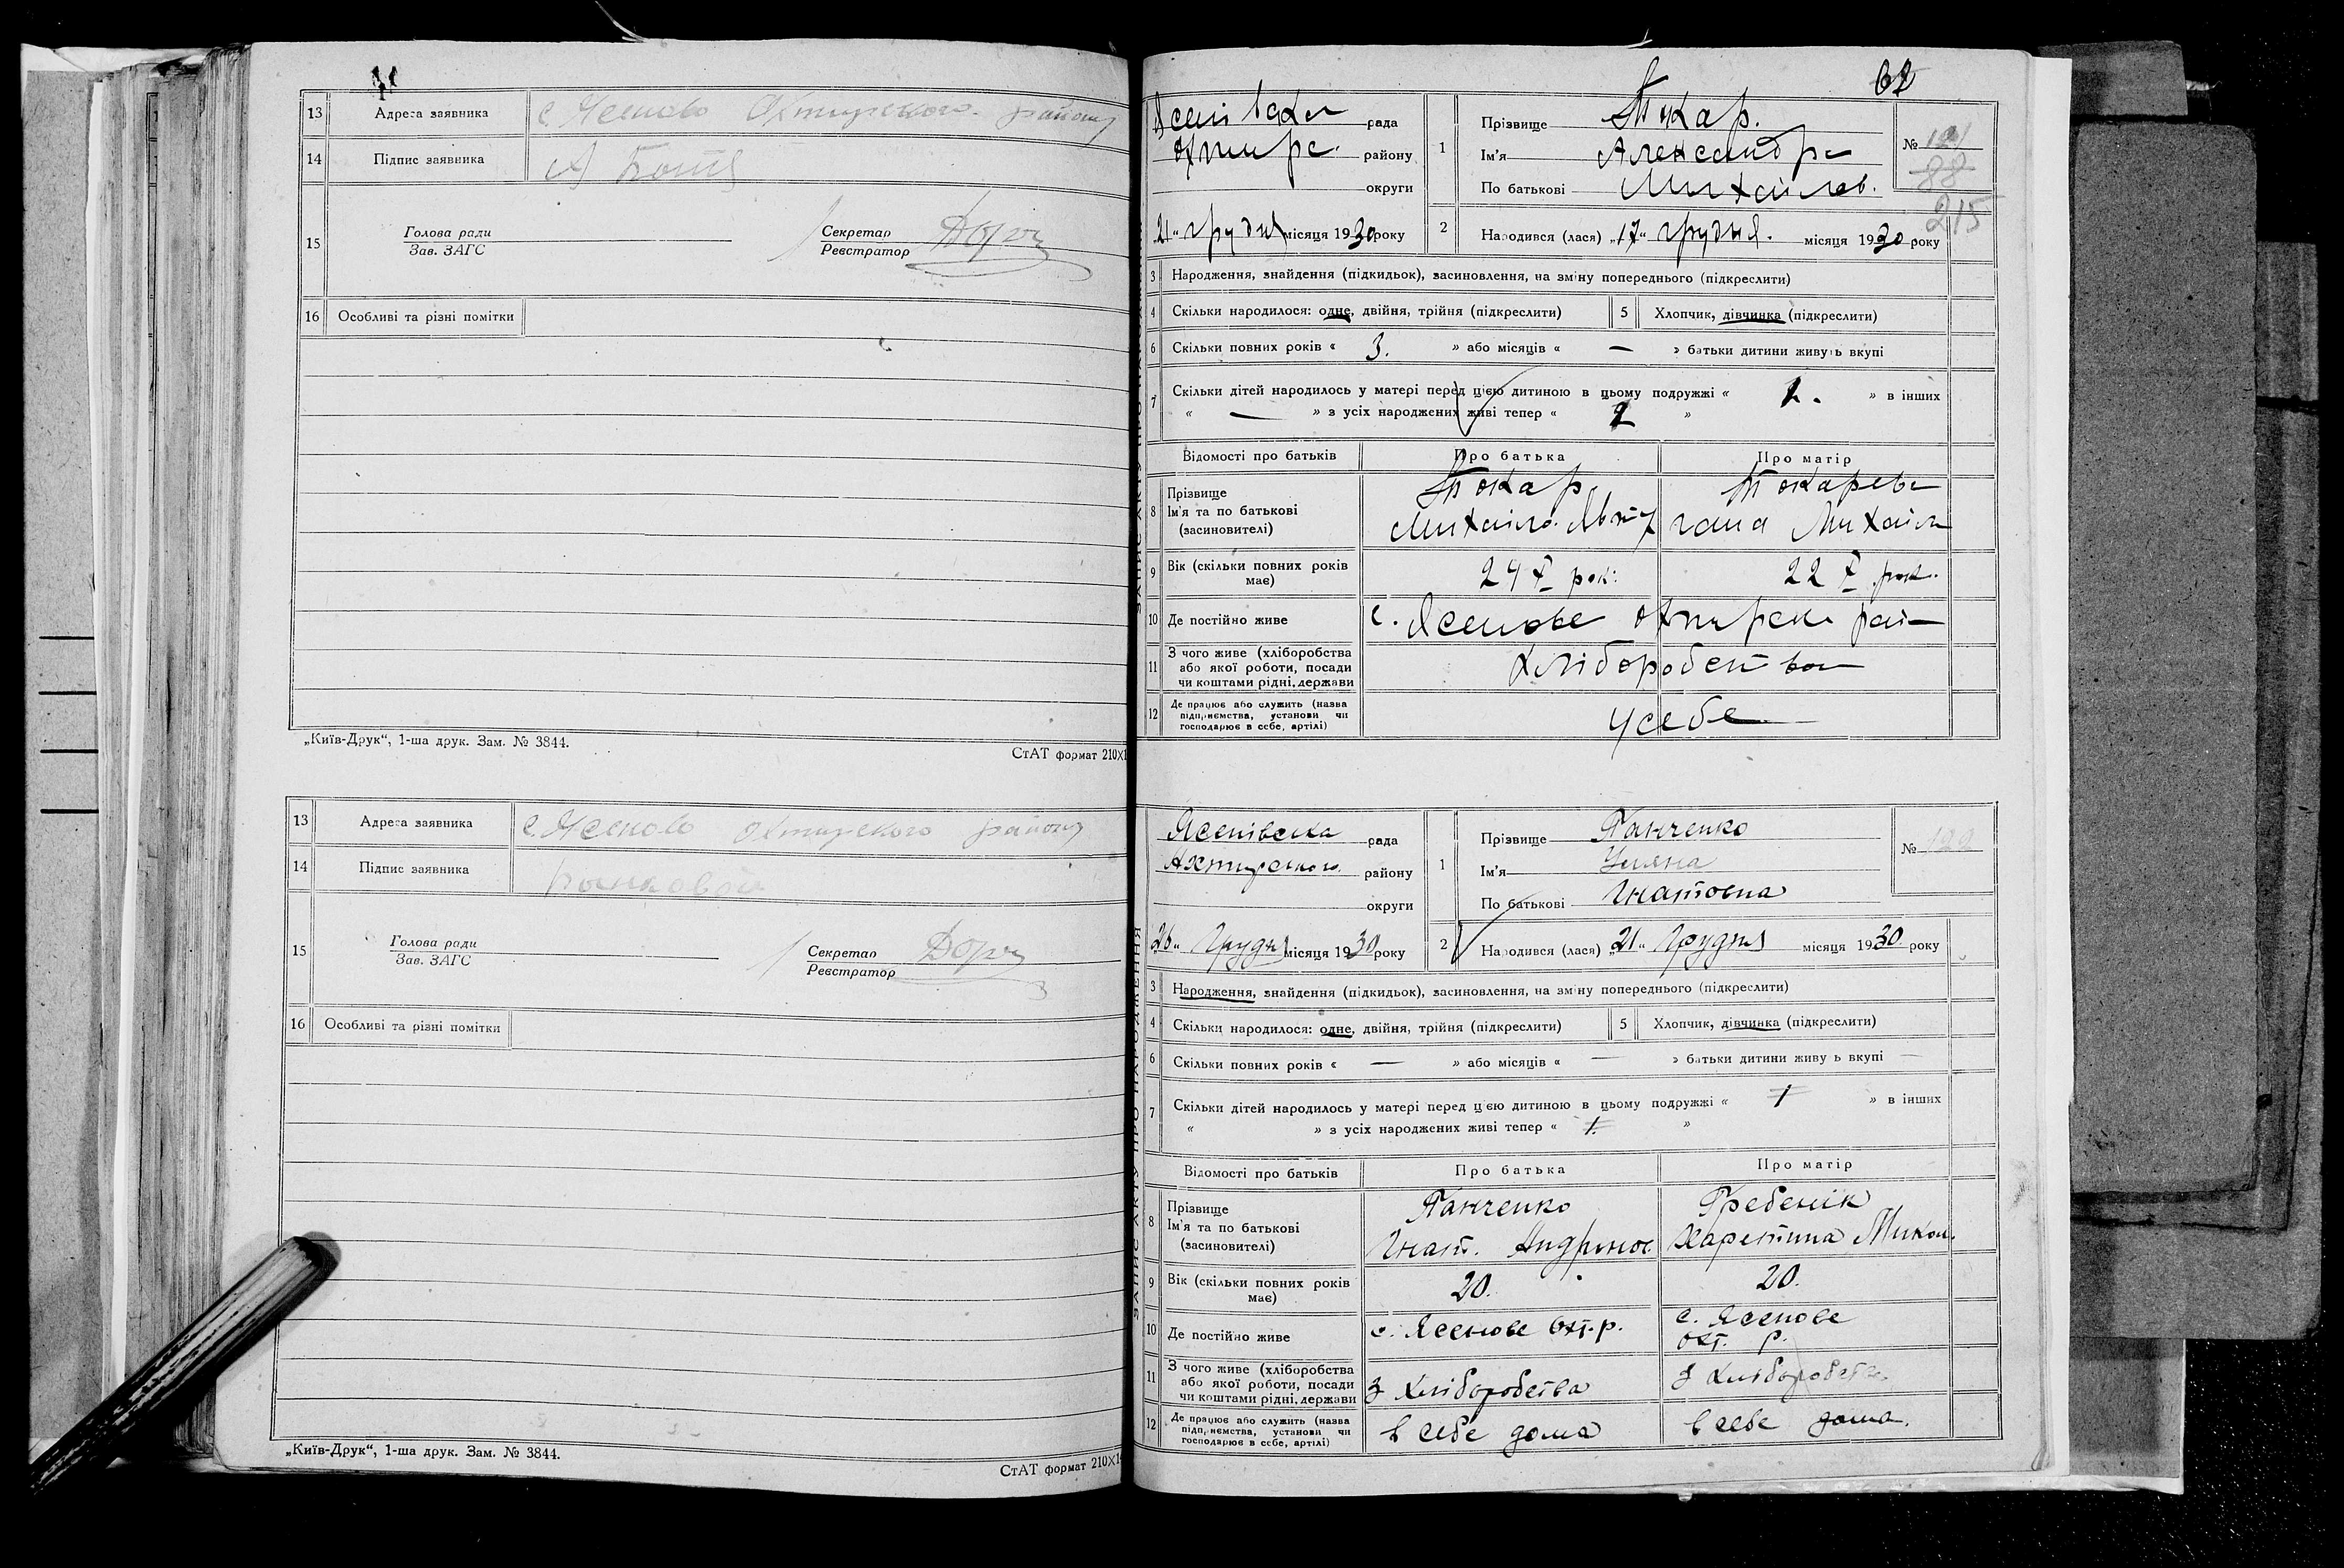 13 Адреса заявника с. Ясеново Охтирского району
14 Підпис заявника
15 Голова ради
Зав. ЗАГС
Секретар
Реєстратор
16 Особливі та різні помітки
„Київ-Друк“, 1-ша друк. Зам. № 3844.
СтАТ формат 210X1
13 Адреса заявника с. Ясеново Охтирского району
14 Підпис заявника
15 Голова ради
Зав. ЗАГС
Секретар
Реєстратор
16 Особливі та різні помітки
„Київ-Друк“, 1-ша друк. Зам. № 3844.
СтАТ формат 210X1
62
рада
Охтирс. району
округи
21 грудня місяця 1930 року
1 Прізвище Токар.
Ім'я Александра
По батькові Михайлов.
№ 121
88
215
2 Народився (лася) „17“ грудня. місяця 1930 року
3 Народження, знайдення (підкидьок), засиновлення, на зміну попереднього (підкреслити)
4 Скільки народилося: одне, двійня, трійня (підкреслити) 5 Хлопчик, дівчинка (підкреслити)
6 Скільки повних років « 3. » або місяців « — » батьки дитини живуть вкупі
7 Скільки дітей народилось у матері перед цією дитиною в цьому подружжі « » в інших
« — » з усіх народжених живі тепер « »
Відомості про батьків Про батька Про матір
8 Прізвище
Ім'я та по батькові
(засиновителі)
Токар.
Михайло
Токарева
9 Вік (скільки повних років
має)
рок. рок.
10 Де постійно живе с. Ясенове Охтирськ рай
11 З чого живе (хліборобства
або якої роботи, посади
чи коштами рідні, держави
12 Де працює або служить (назва
підприємства, установи чи
господарює в себе, артілі)
усебе
ЗАПИС АКТУ ПРО НАРОДЖЕННЯ
Ясенівська рада
Ахтирського району
округи
„26“ Грудня місяця 1930 року
1 Прізвище Панченко
Ім'я Уляна
По батькові Гнатовна
№ 122
2 Народився (лася) „21“ Грудня місяця 1930. року
3 Народження, знайдення (підкидьок), засиновлення, на зміну попереднього (підкреслити)
4 Скільки народилося: одне, двійня, трійня (підкреслити) 5 Хлопчик, дівчинка (підкреслити)
6 Скільки повних років « — » або місяців « — » батьки дитини живу ь вкупі —
7 Скільки дітей народилось у матері перед цією дитиною в цьому подружжі « 1 » в інших
« » з усіх народжених живі тепер « 1. »
Відомості про батьків Про батька Про матір
8 Прізвище
Ім'я та по батькові
(засиновителі)
Панченко
Гнат.
Гребеник
Харетина Микол.
9 Вік (скільки повних років
має)
20. 20.
10 Де постійно живе с. Ясенове Охт. р.
с. Ясенове
Охт. р.
11 З чого живе (хліборобства
або якої роботи, посади
чи коштами рідні, держави
З хліборобства
З хліборобства
12 Де працює або служить (назва
підприємства, установи чи
господарює в себе, артілі)
в себе дома
в себе дома.